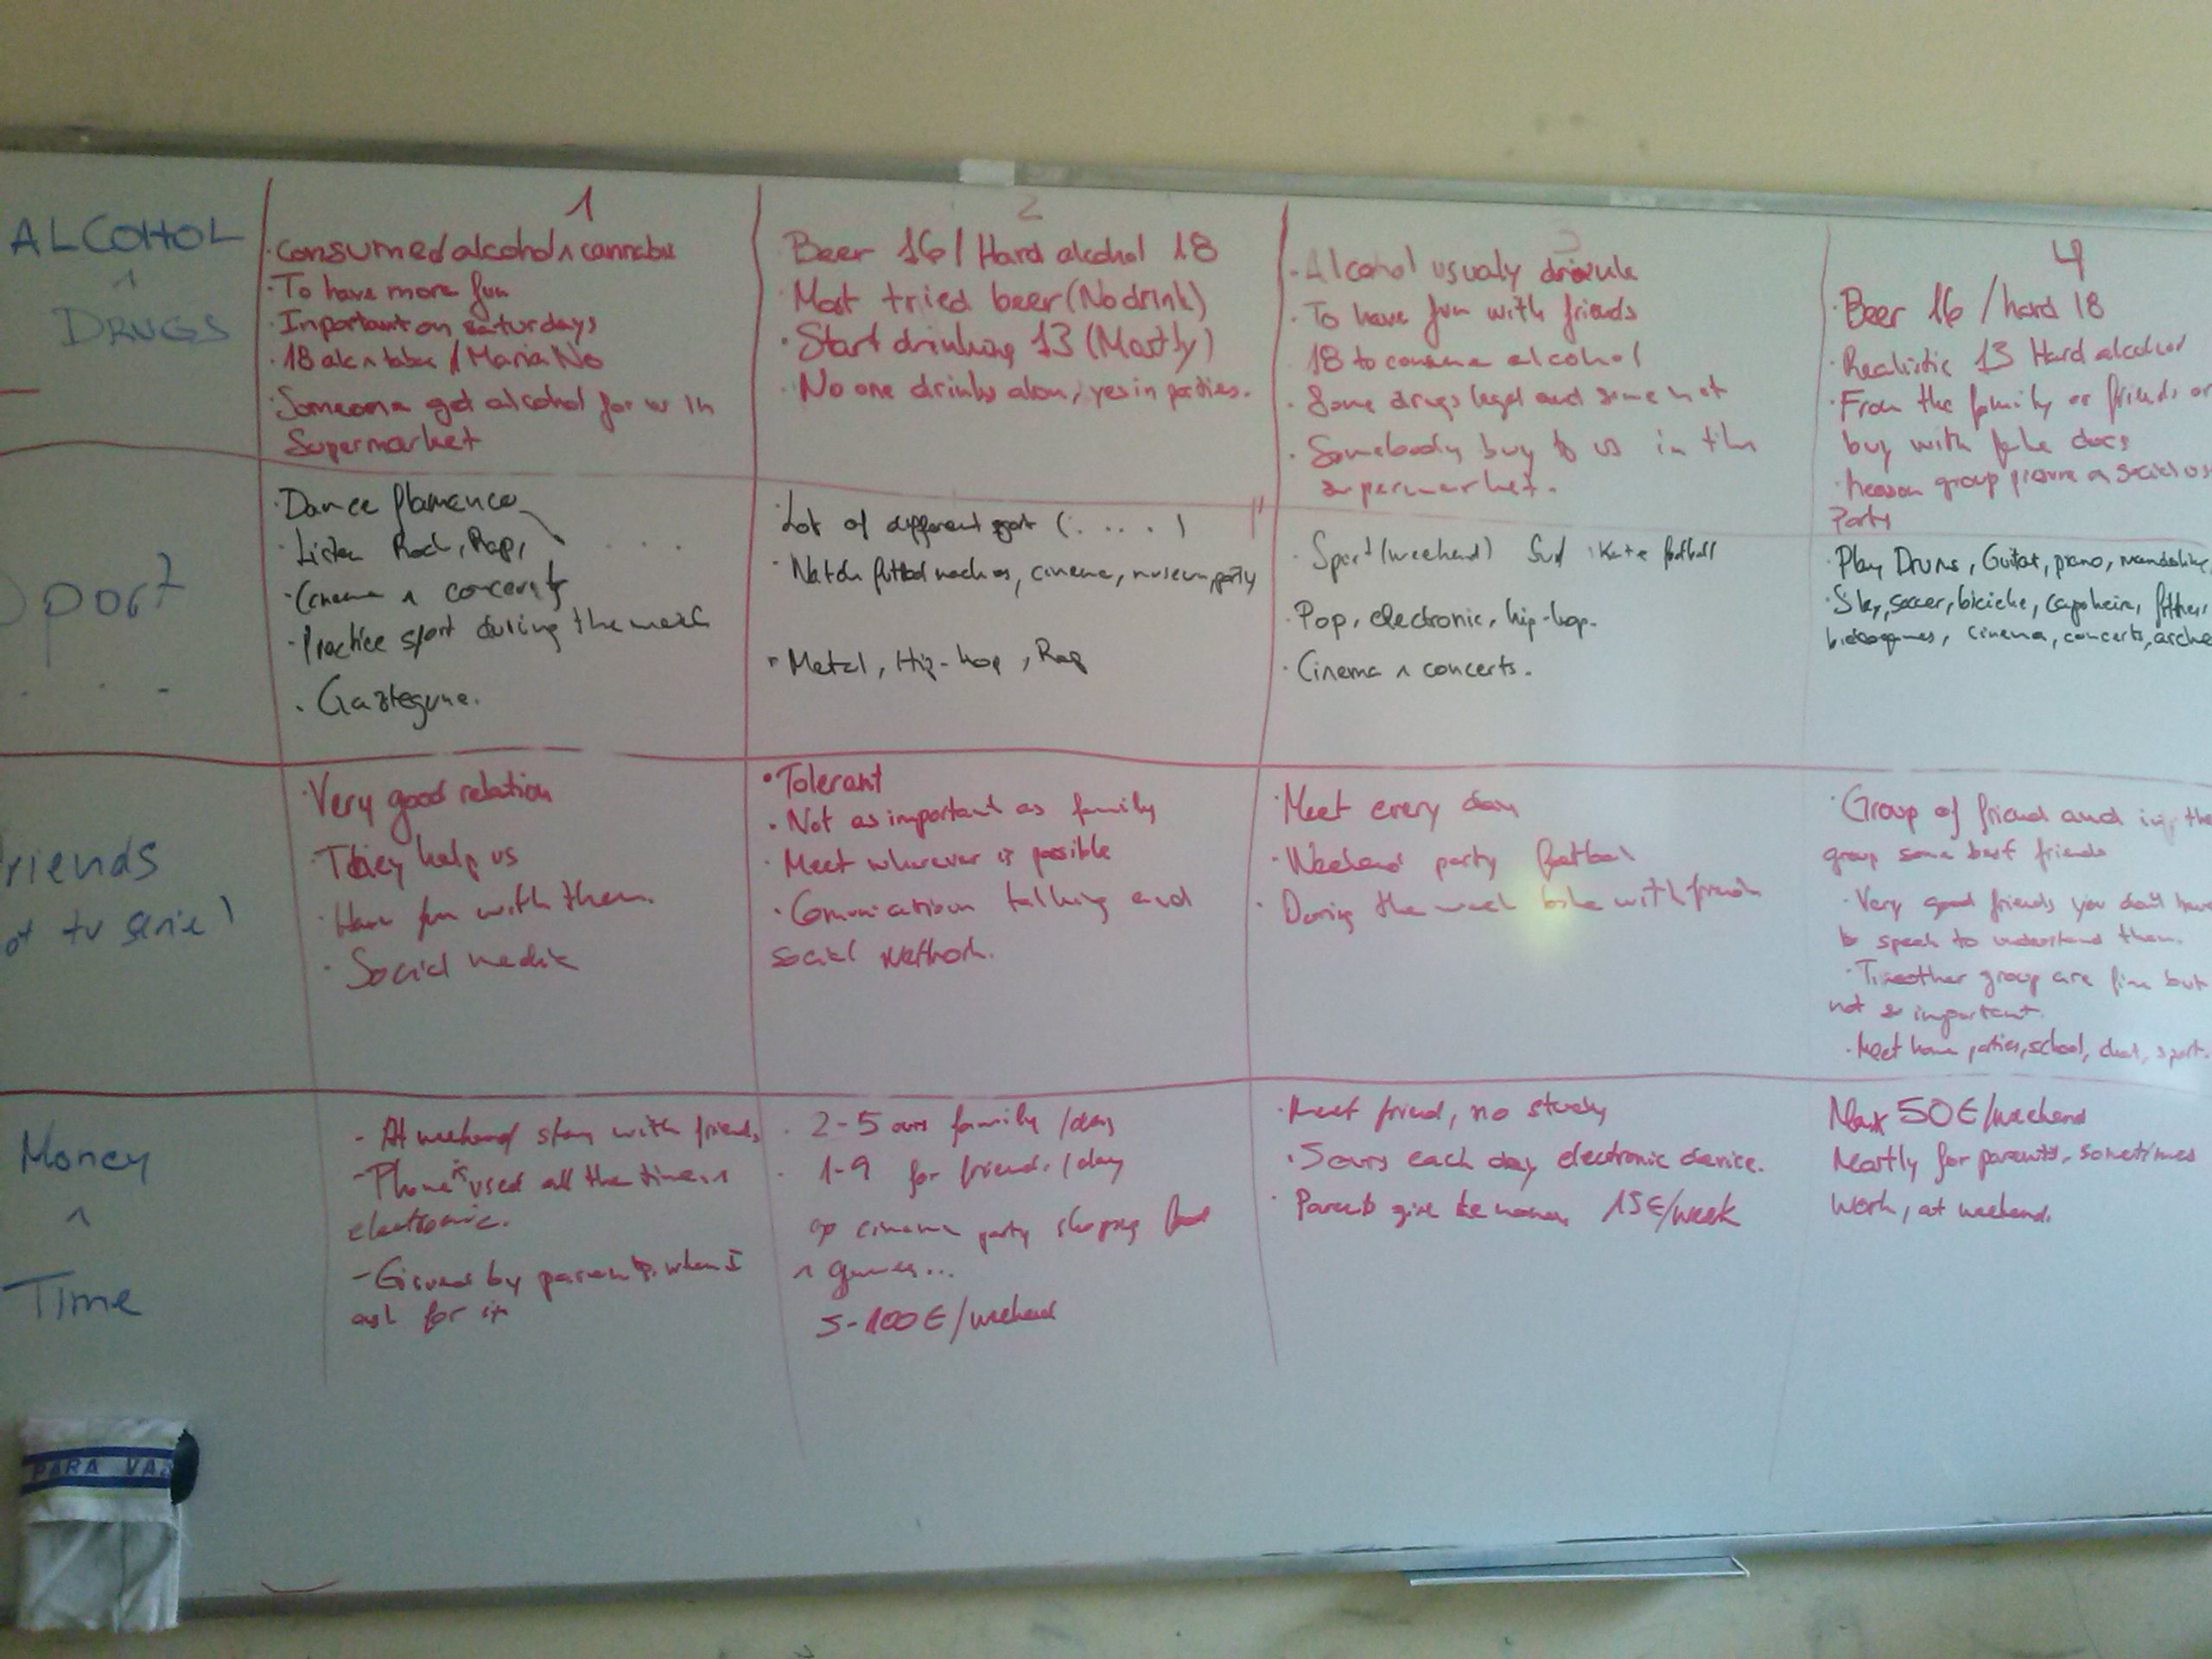 1
2
3
4
ALCOHOL
^
DRUGS
· Consumed alcohol ^ cannabis
· To have more fun
· Inportant on saturdays
· 18 alc ^ tabac / Maria No
· Someone get alcohol for us in
Supermarket
Beer 16 / Hard alcohol 18
· Most tried beer (No drink)
· Start drinking 13 (Mostly)
· No one drinks alon, yes in parties.
· Alcohol usualy
· To have fun with friends
18 to consume alcohol
· Some drugs legal and some not
· Somebody buy to us in the
supermarket.
· Beer 16 / hard 18
· Realistic 13 Hard alcohol
· From the family or friends or
buy with fake docs
· Reason group a social
Party
Sport
. . .
· Dance flamenco
· Listen Rock, Rap, . . .
· Cinema ^ concerts
· Practice sport during the week
· Gaztegune.
Lot of different sport (. . . . )
· Futbol, cinema, museum, party
· Metal, Hip-hop, Rap
· Sport (weekend) Surf skate football
· Pop, electronic, hip-hop.
· Cinema ^ concerts.
· Play Drums, Guitar, piano,
· Sky, soccer, bicicle,
videogames, cinema, concerts,
riends
ot tv serie)
· Very good relation
· They help us
· Have fun with them.
· Social media
· Tolerant
· Not as important as family
· Meet wherever is possible
· Comunication talking and
social network.
· Meet every day
· Weekend party football
· During the week bike with friends
· Group of friend and in the
group some best friends
· Very good friends you don't have
to speak to understand them.
· group are fine but
not so important.
· Meet home parties, school, chat, sport.
Money
^
Time
- At weekend stay with friends
- Phone is used all the time ^
electronic.
- Givened by parents, when I
ask for it
· 2-5 ours family / day
· 1-9 for friends / day
go cinema party shoping food
^ games...
5-100€/weekend
· Meet friend, no study
· 5 ours each day electronic device.
· Parents give money 15€/week
Max 50€/weekend
Mostly for parents, sometimes
work, at weekend.
PARA VA